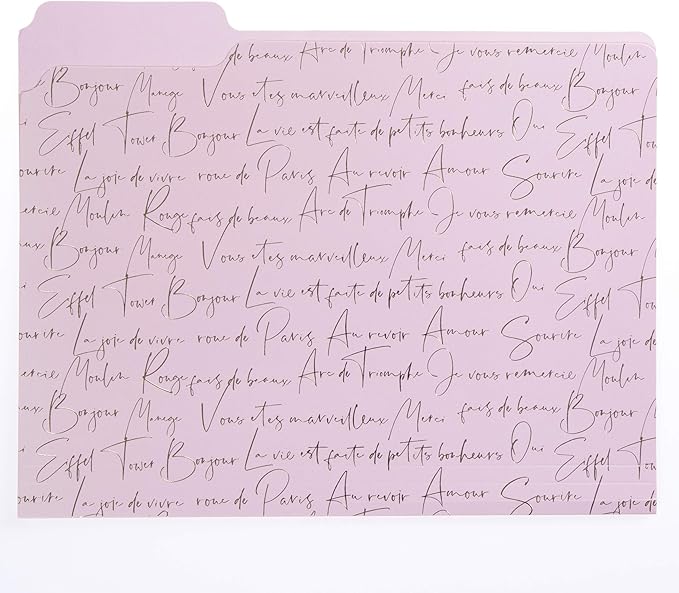 de beaux Arc de Triomphe Je vous remercie Moulin
Bonjour Manege Vous etes marveilleux Merci fais de beaux Bonjour
Eiffel Tower Bonjour La vie est faite de petits bonheurs Oui Eiffel Tow
ourire La joie de vivre roue de Paris Au revoir Amour Sourire La joie d
mercie Moulin Rouge fais de beaux Arc de Triomphe Je vous remercie Moulin
aux Bonjour Manege Vous etes marveilleux Merci fais de beaux Bonjour
Eiffel Tower Bonjour La vie est faite de petits bonheurs Oui Eiffel Tow
ourire La joie de vivre roue de Paris Au revoir Amour Sourire La joie de
ercie Moulin Rouge fais de beaux Arc de Triomphe Je vous remercie Moulin
ux Bonjour Manege Vous etes marveilleux Merci fais de beaux Bonjour
Eiffel Tower Bonjour La vie est faite de petits bonheurs Oui Eiffel Tow
ourire La joie de vivre roue de Paris Au revoir Amour Sourire La joie de